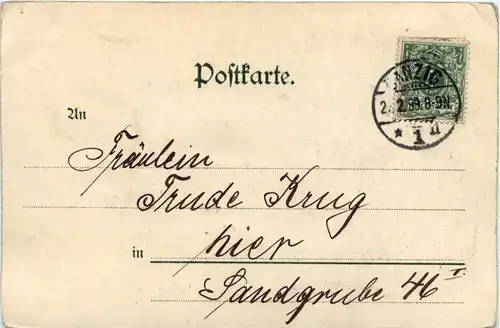 Postkarte.
DANZIG
2. 2. 99. 8-9N.
* 1 d
An
Fräulein
Trude Krug
in hier
Sandgrube 46 I.